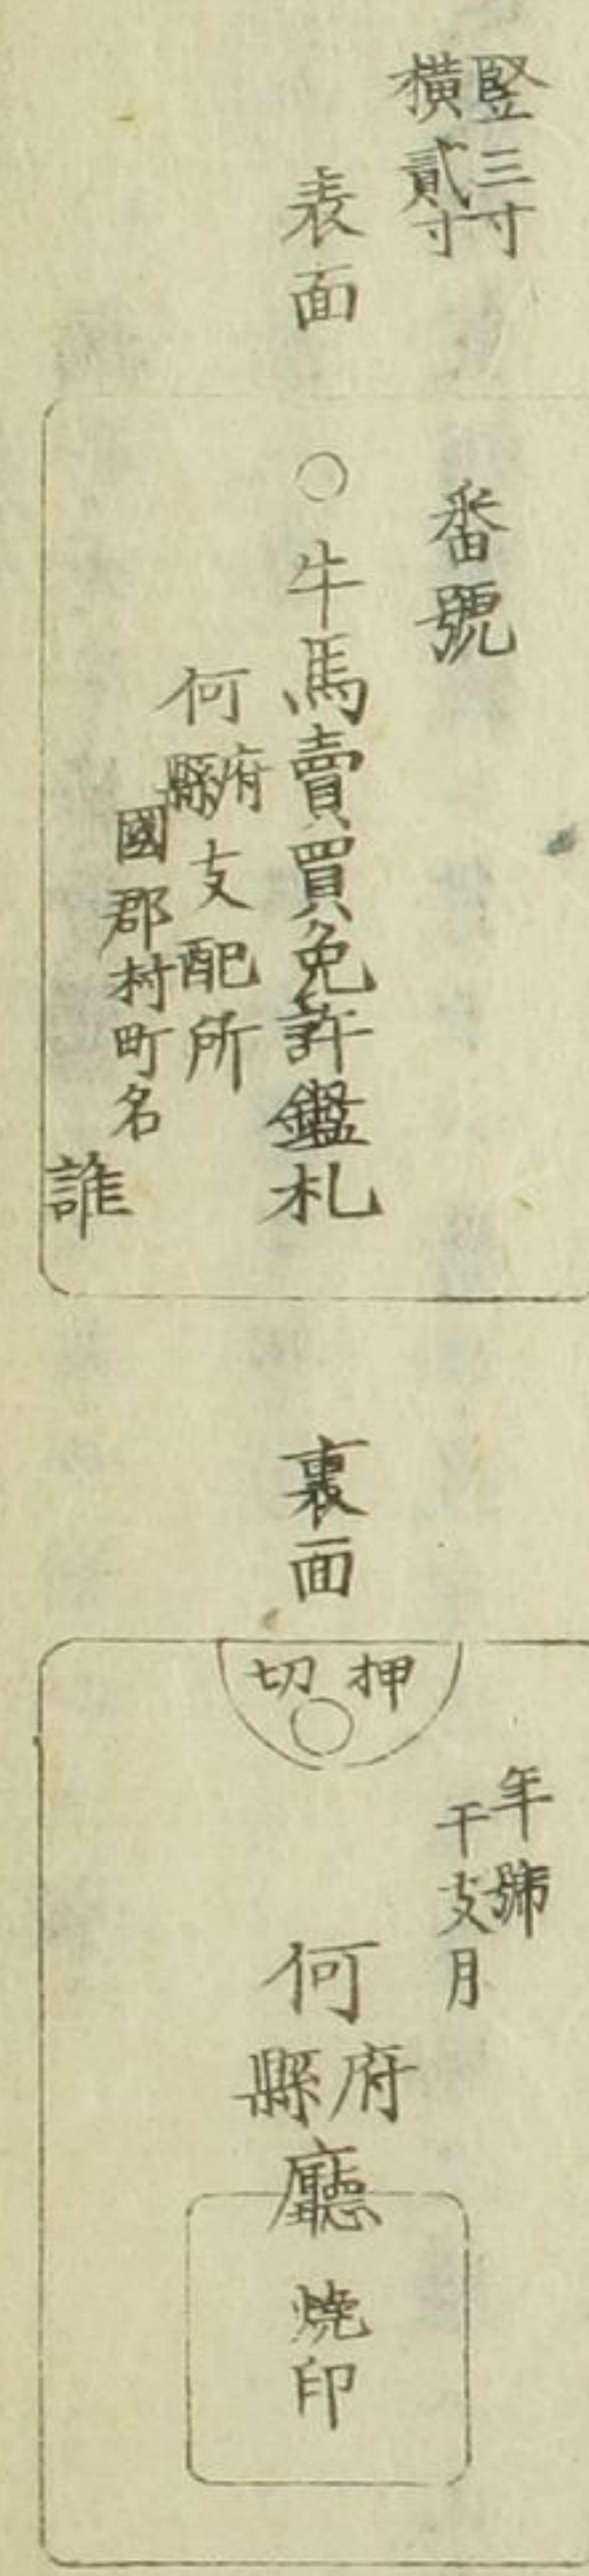 竪三寸
横貳寸
表面
番號
○牛馬賣買免許鑑札
何府縣支配所
國郡村町名
誰
裏面
押切
○
年號
干支月
何府縣廳
燒印